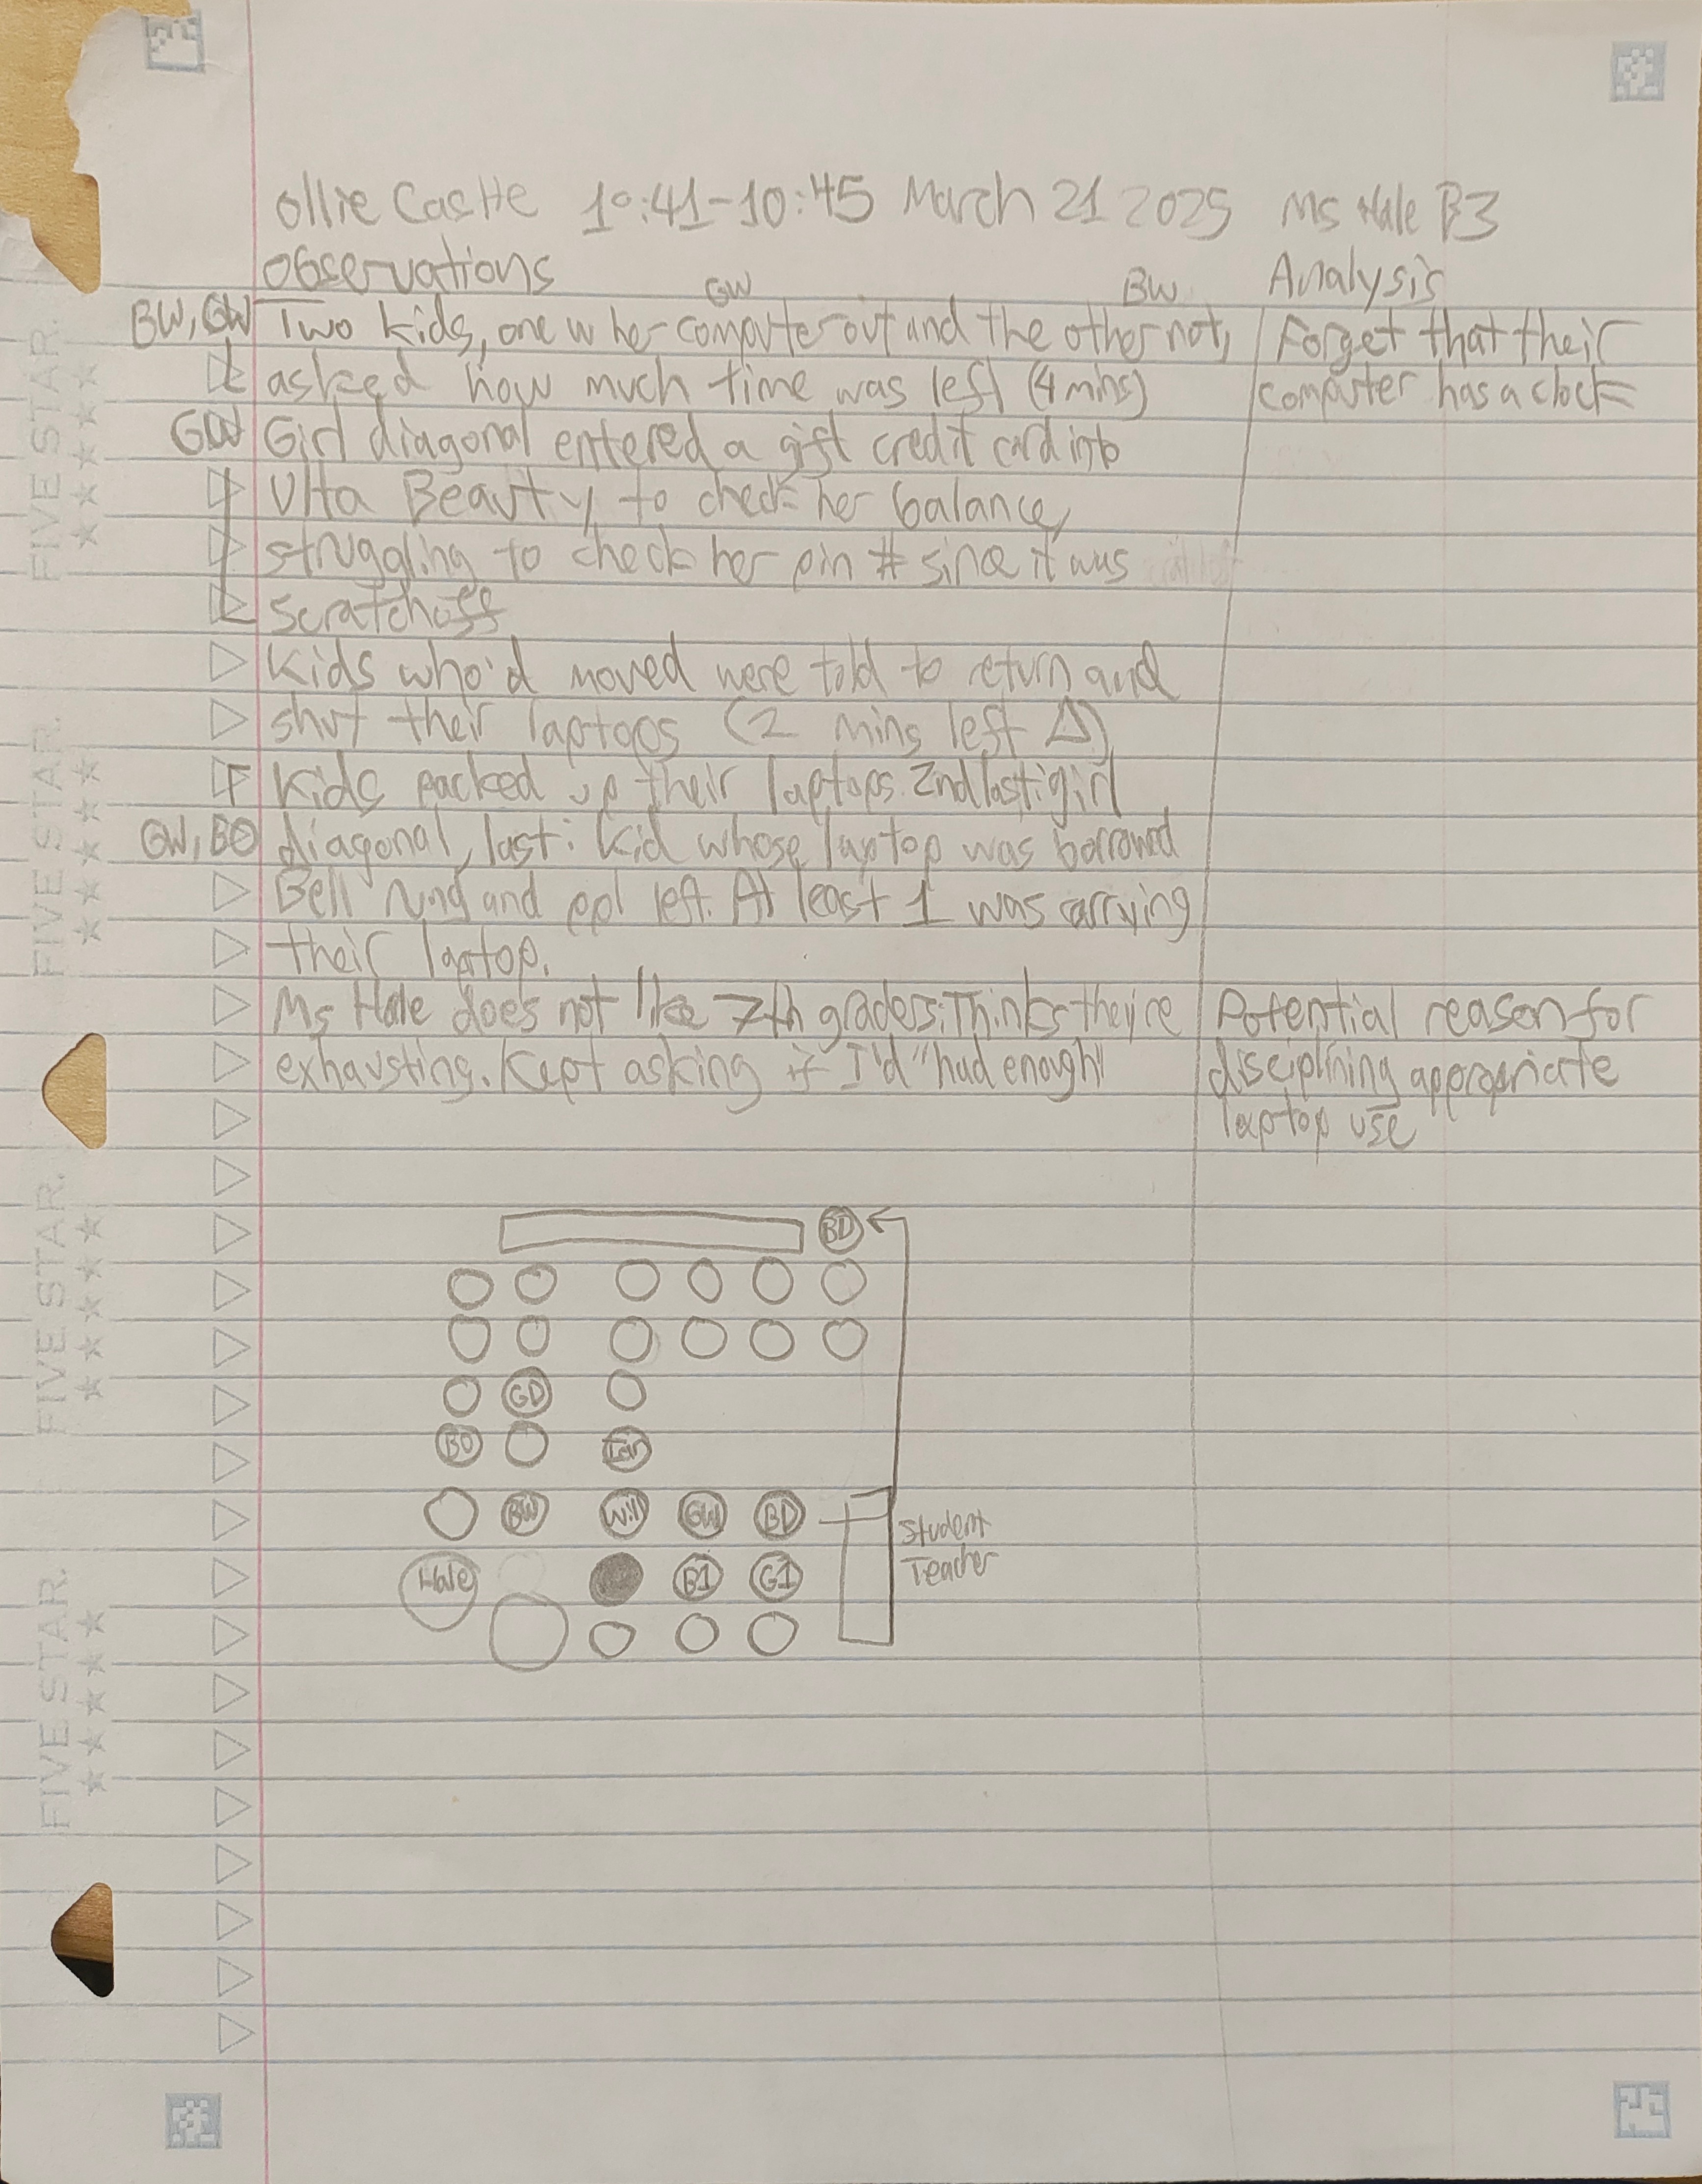 Ollie Castle 10:41-10:45 March 21 2025 Ms Hale B3
Observations
Analysis
GW
BW
BW, GW Two kids, one w her computer out and the other not,
Forget that their
asked how much time was left (4 mins)
computer has a clock
GW Girl diagonal entered a gift credit card into
Ulta Beauty to check her balance,
struggling to check her pin # since it was
scratchoff
Kids who'd moved were told to return and
shut their laptops (2 mins left Δ)
Kids packed up their laptops. 2nd last: girl
GW, BO diagonal, last: kid whose laptop was borrowed
Bell rung and ppl left. At least 1 was carrying
their laptop.
Ms Hale does not like 7th graders: Thinks they're
Potential reason for
exhausting. Kept asking if I'd "had enough"
disciplining appropriate
laptop use
BD
GD
BO Ian
BW Will GW BD
Student
Teacher
Hale B1 G1
FIVE STAR.
FIVE STAR.
FIVE STAR.
FIVE STAR.